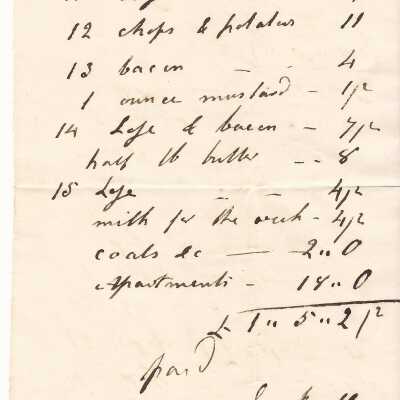 12 chops & potatoes 11
13 bacon — - 4
1 ounce mustard - 1/2
14 Lofe & bacon - 7/2
half lb butter - - 8
15 Lofe - - 4/2
milk for the week - 4/2
coals &c — 2 " 0
Apartments - 18 " 0
£ 1 " 5 " 2 /2
paid